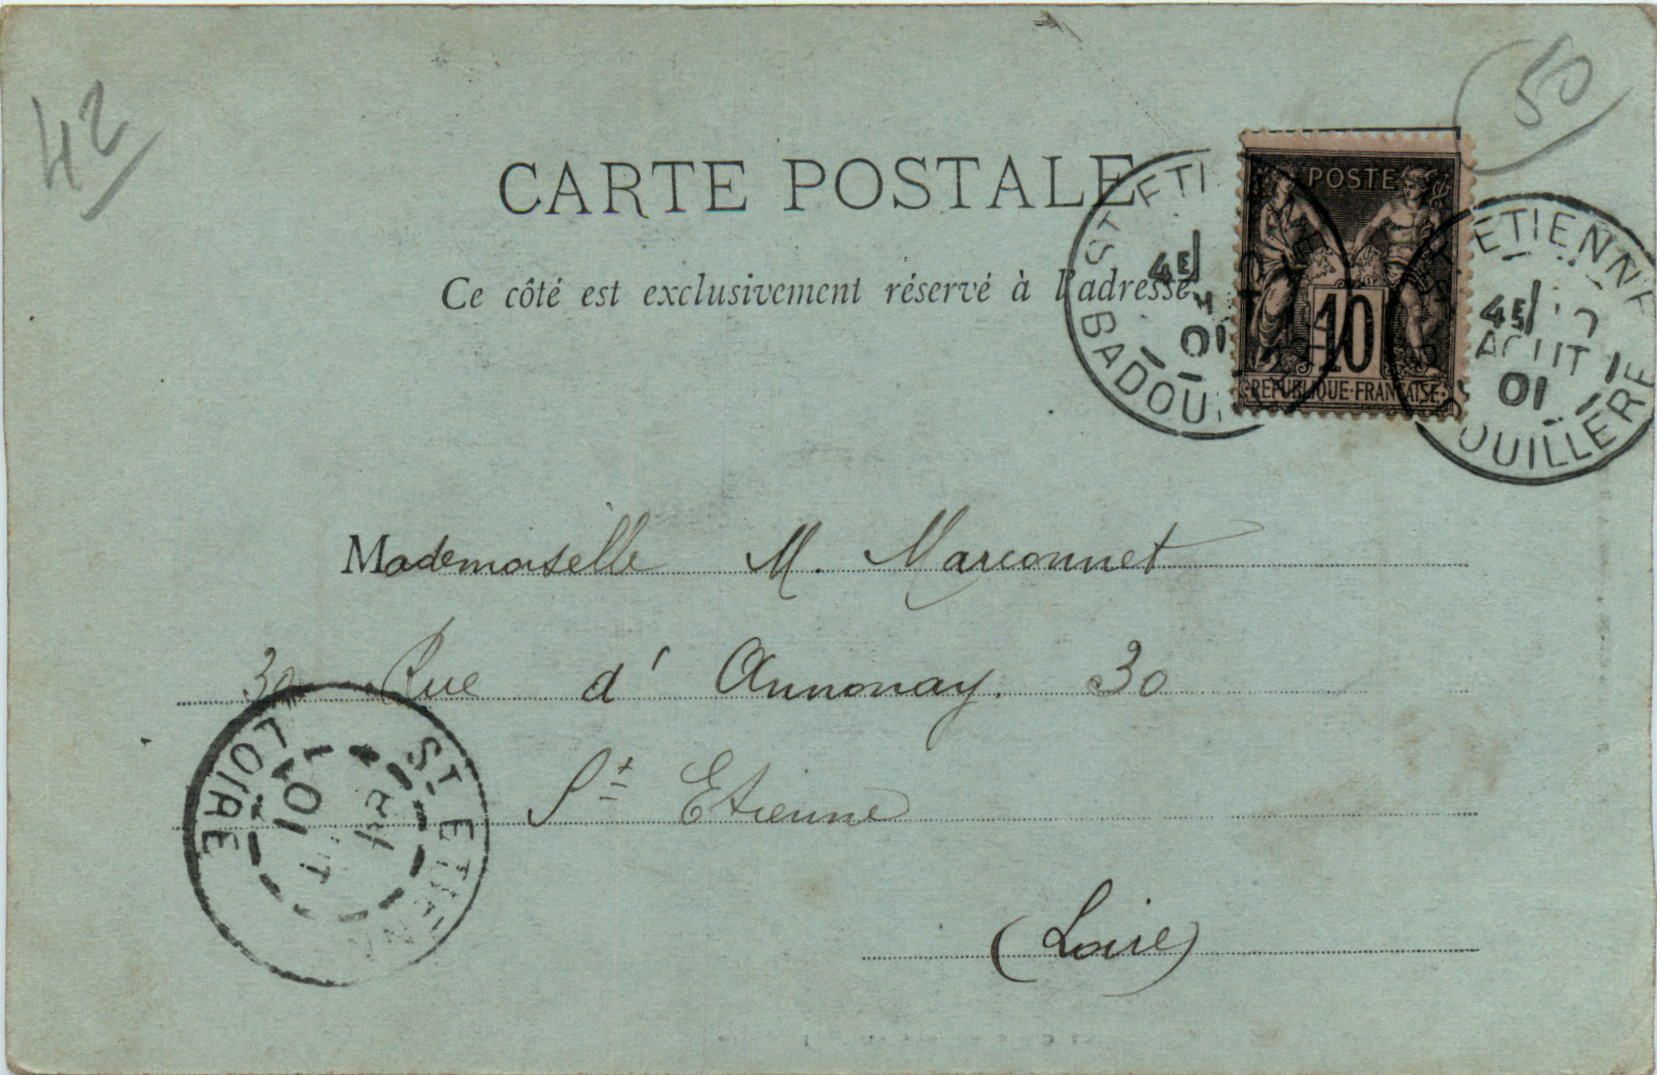 42
50
CARTE POSTALE
Ce côté est exclusivement réservé à l'adresse.
ST ETI
4E
01
BADOU
POSTE
10
REPUBLIQUE·FRANCAISE
ETIENNE
4E
AOUT
01
OUILLERE
Mademoiselle M. Marconnet
30 Rue d' Annonay. 30
St Etienne
(Loire)
ST ETIENNE
1
01
LOIRE